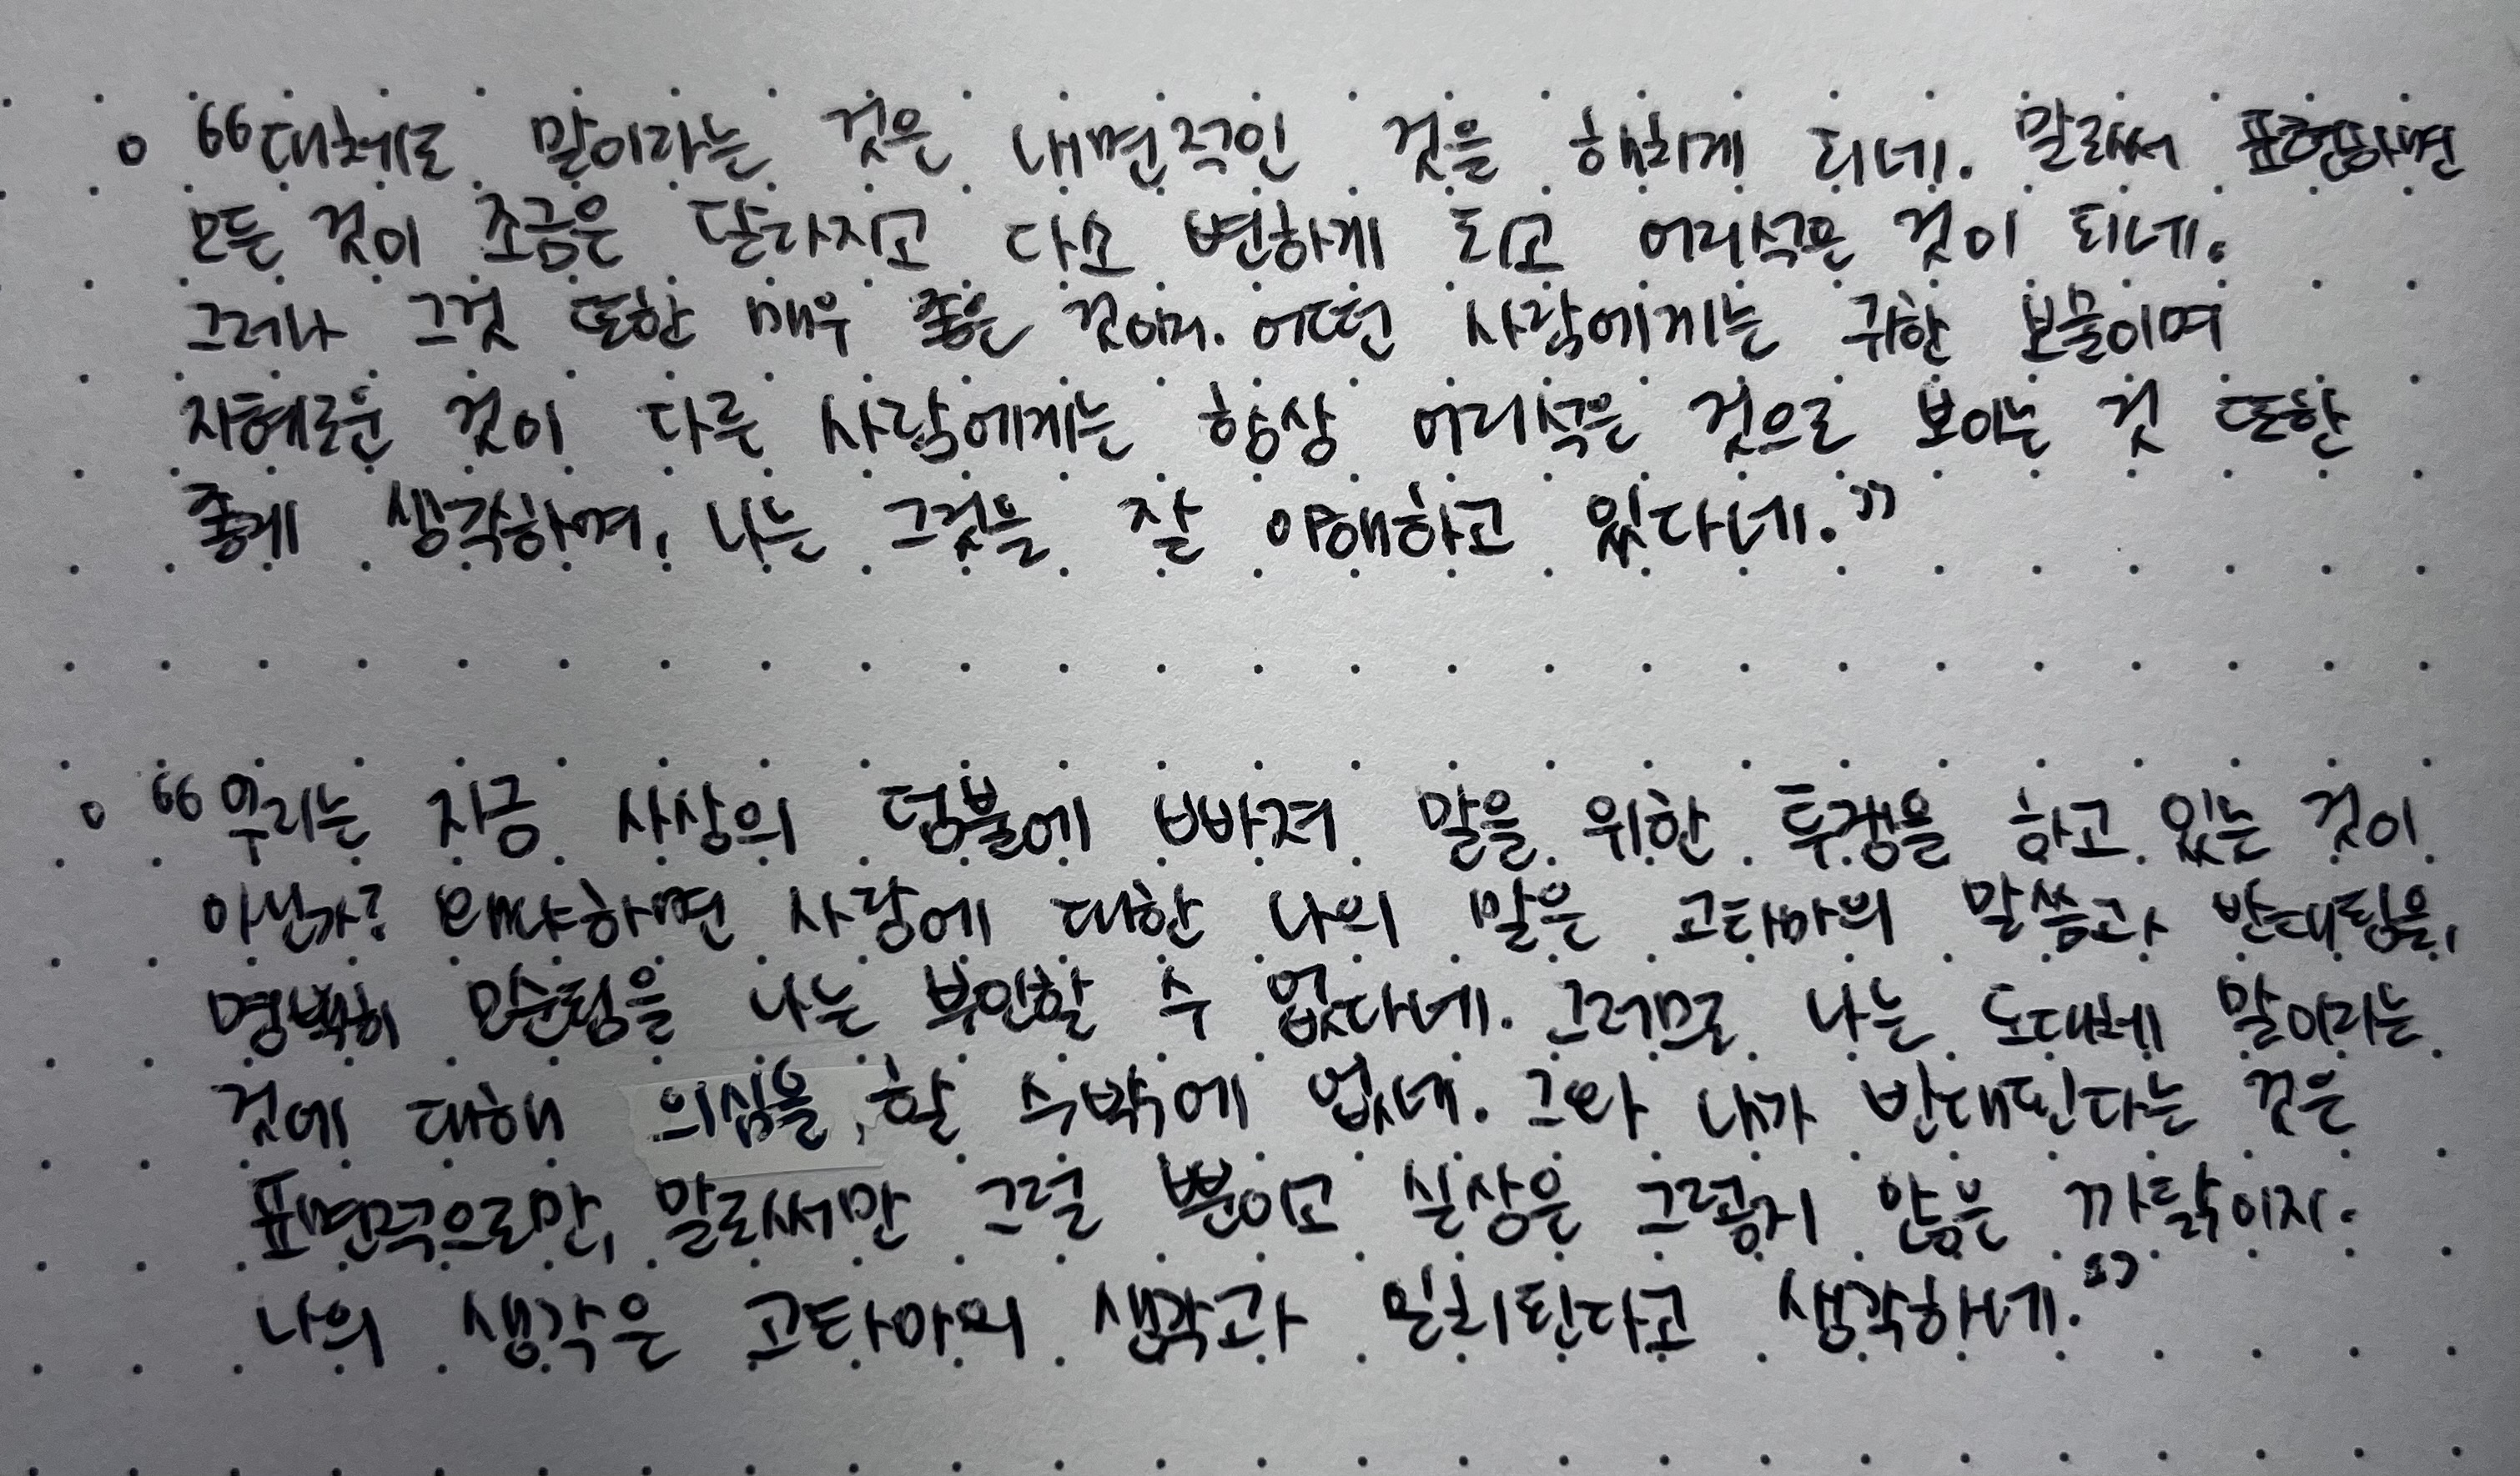 o “대체로 말이라는 것은 내면적인 것을 해치게 되네. 말로써 표현하면
모든 것이 조금은 달라지고 다소 변하게 되고 어리석은 것이 되네.
그러나 그것 또한 매우 좋은 것이지. 어떤 사람에게는 귀한 보물이며
지혜로운 것이 다른 사람에게는 항상 어리석은 것으로 보이는 것 또한
좋게 생각하며, 나는 그것을 잘 이해하고 있다네.”
o “우리는 지금 사상의 덤불에 빠져 말을 위한 투쟁을 하고 있는 것이
아닌가? 왜냐하면 사랑에 대한 나의 말은 고타마의 말씀과 반대됨을,
명백히 모순됨을 나는 부인할 수 없다네. 그러므로 나는 도대체 말이라는
것에 대해 의심을 할 수밖에 없네. 그와 내가 반대된다는 것은
표면적으로만, 말로써만 그럴 뿐이고 실상은 그렇지 않은 까닭이지.
나의 생각은 고타마의 생각과 일치된다고 생각하네.”